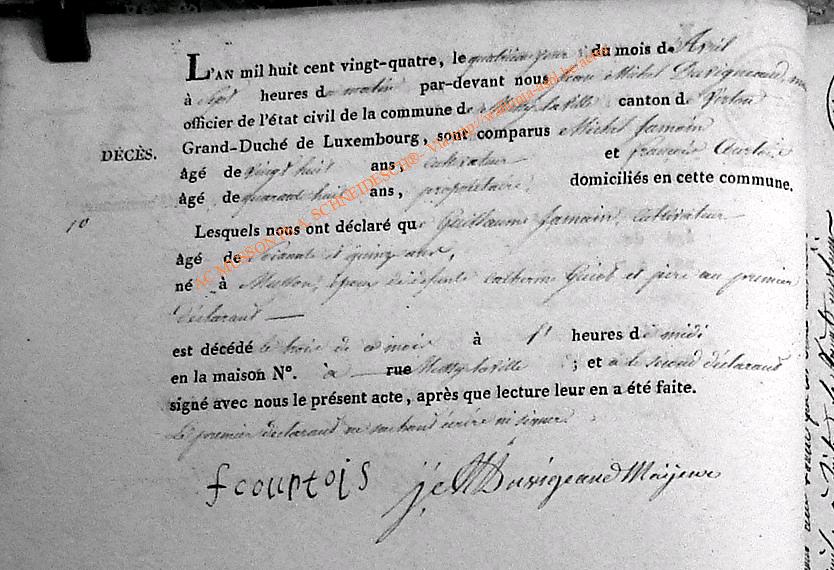 L'AN mil huit cent vingt-quatre, le quatrième jour du mois d'Avril
à Sept heures du matin par-devant nous Jean Michel Duvigneaud
officier de l'état civil de la commune de Mussy-la-Ville canton de Virton
DÉCÈS. Grand-Duché de Luxembourg, sont comparus Michel Jamain
âgé de vingt huit ans, cultivateur et françois Courtois
âgé de quarante huit ans, propriétaire, domiciliés en cette commune.
10
Lesquels nous ont déclaré que Guillaume Jamain, cultivateur
âgé de soixante et quinze ans,
né à Musson, époux de défunte Catherine Guiot et père au premier
déclarant
est décédé le trois de ce mois à heures de midi
en la maison N°. à rue Mussy-la-Ville ; et a le second déclarant
signé avec nous le présent acte, après que lecture leur en a été faite.
Le premier déclarant ne sachant écrire ni signer.
fcourtois j. M Duvigeaud
AC MUSSON (c) A. SCHNEIDESCH